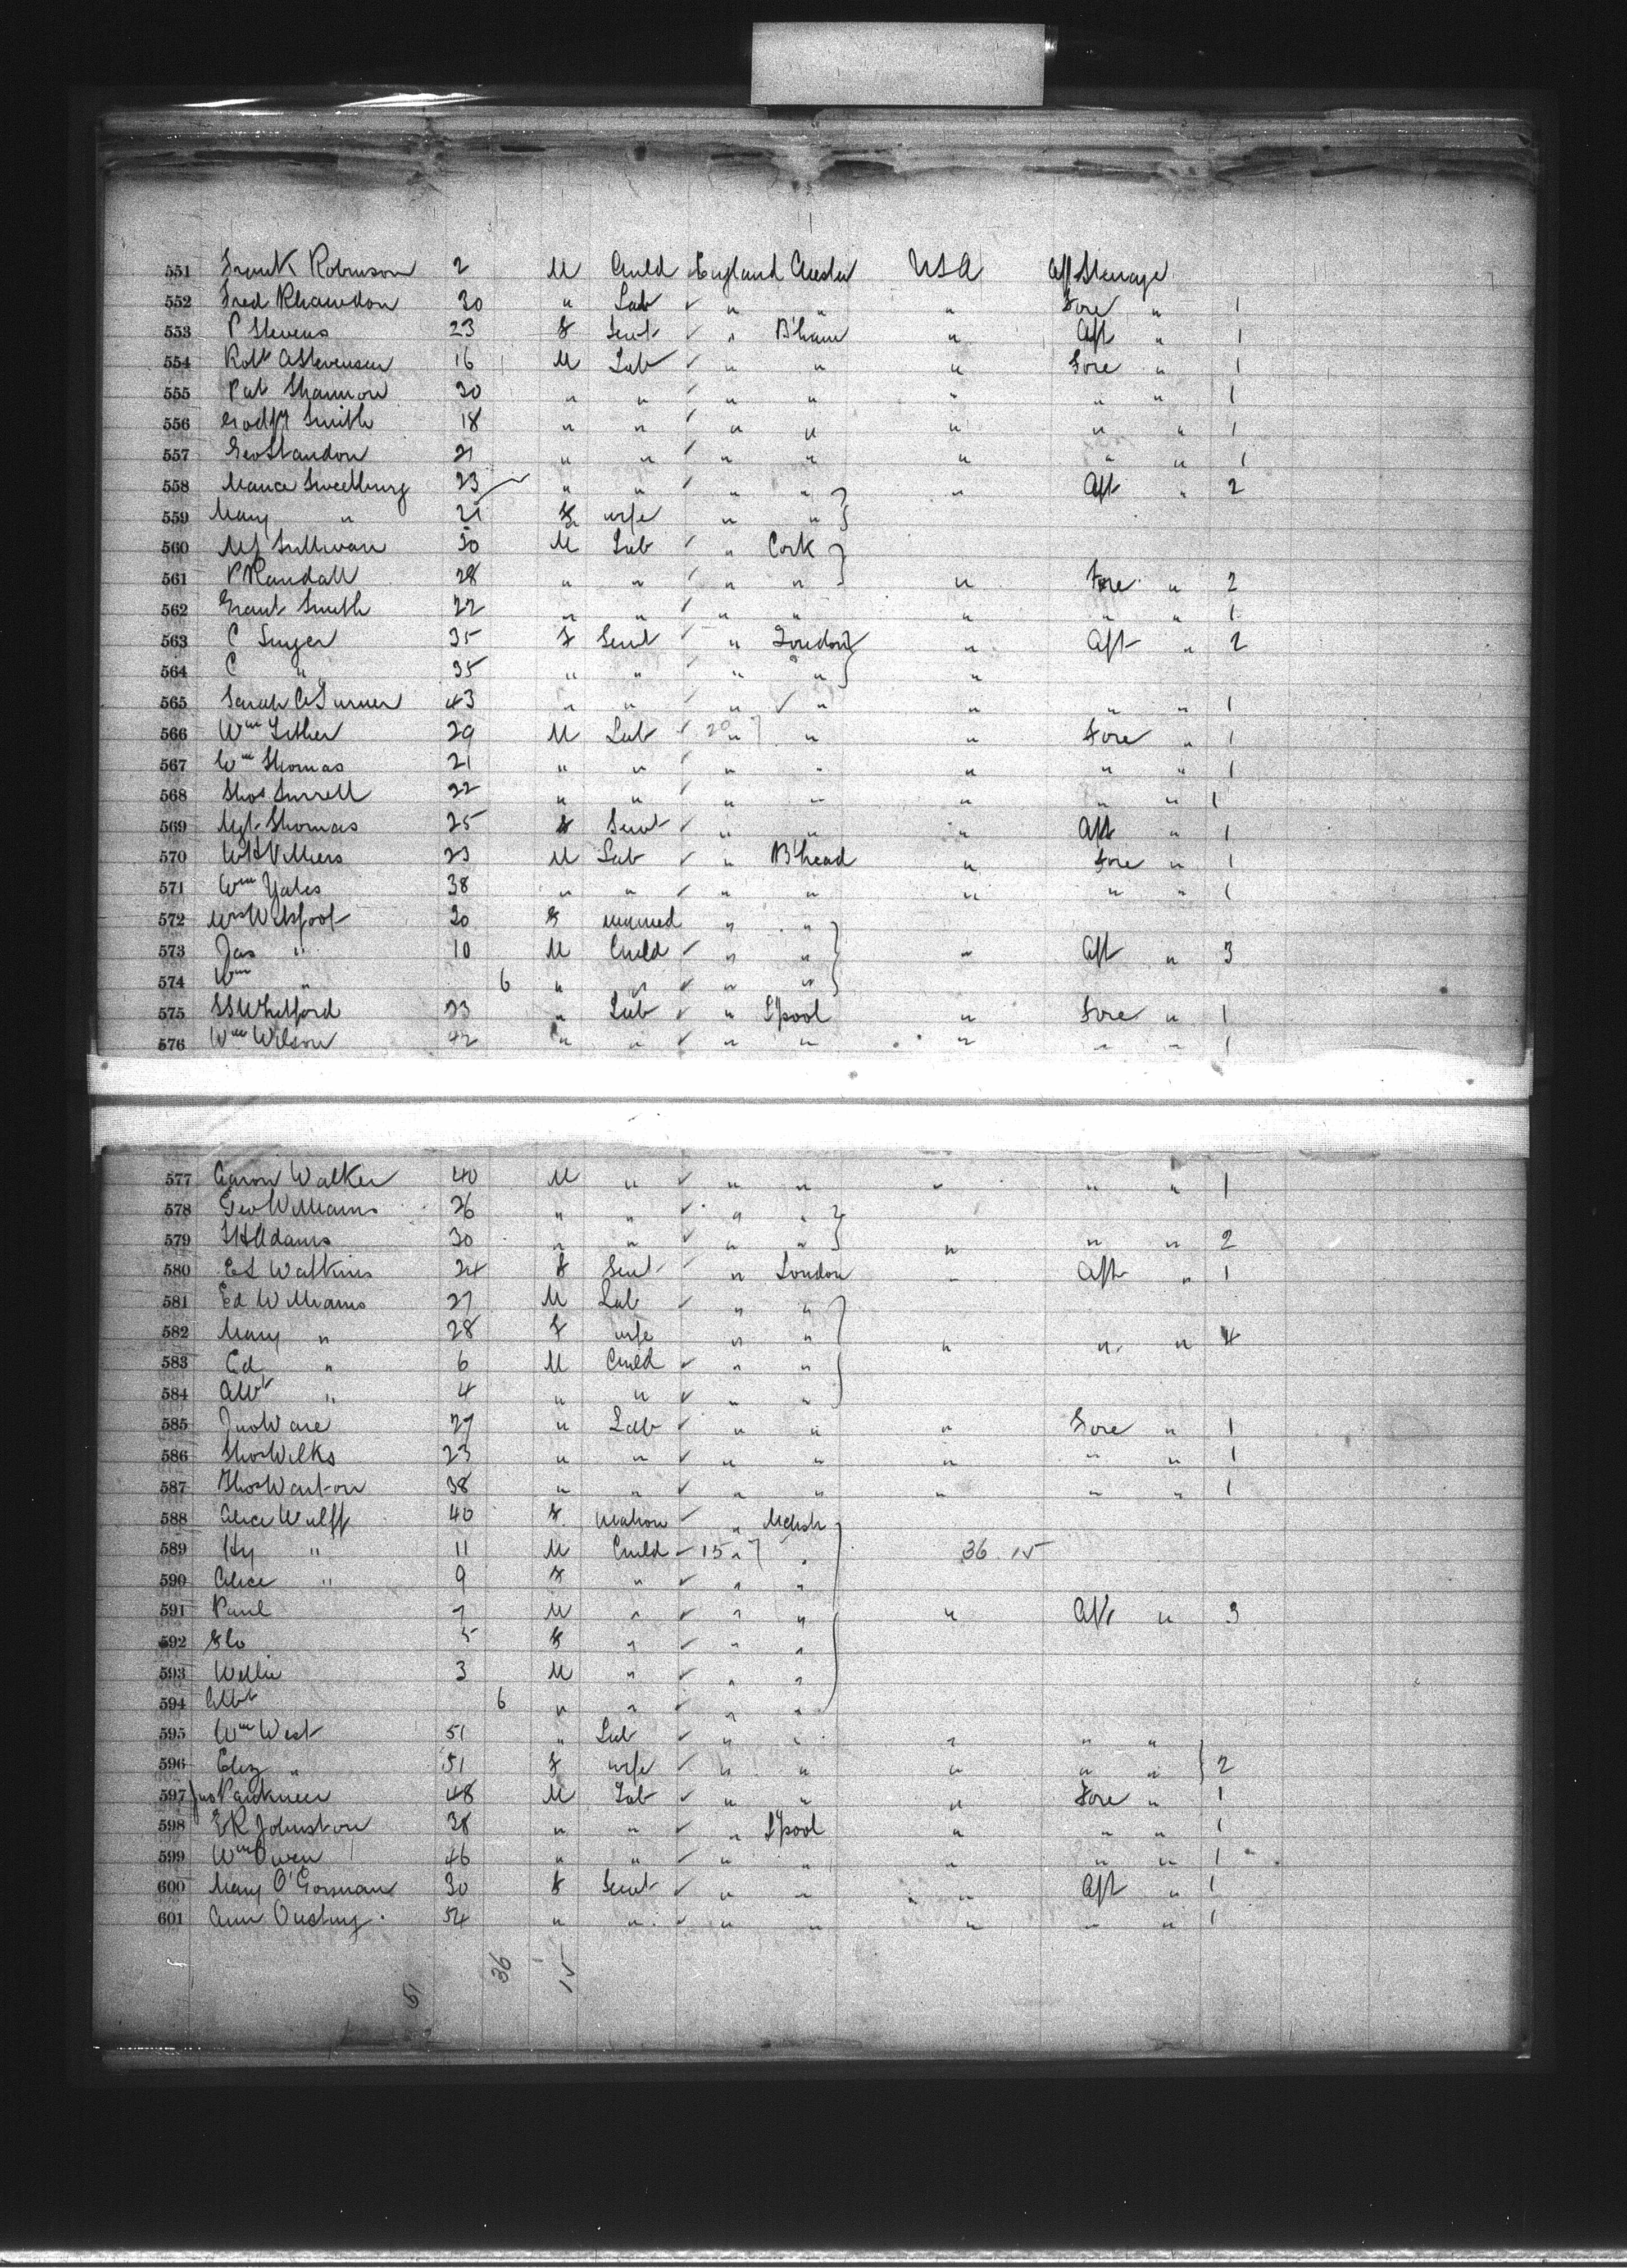 551 Frank Robinson 2 M Child England Chester USA Aft Steerage
552 Fred Rhawdon 30 " Lab ✓ " " " Fore " 1
553 P Stevens 23 F Servt ✓ " B'ham " Aft " 1
554 Robt A Stevenson 16 M Lab ✓ " " " Fore " 1
555 Pat Shannon 30 " " ✓ " " " " " 1
556 Smith 18 " " ✓ " " " " " 1
557 Geo Standon 21 " " ✓ " " " " " 1
558 Swedburg 23 " " ✓ " " " Aft " 2
559 Mary " 21 F wife " "
560 MJ Sullivan 30 M Lab ✓ " Cork
561 P Randall 28 " " ✓ " " " Fore " 2
562 Grant Smith 22 " " ✓ " " " " " 1
563 C Singer 35 F Servt ✓ " London " Aft " 2
564 C " 35 " " ✓ " " "
565 Sarah A Turner 43 " " ✓ " ✓ " " " " 1
566 Wm 29 M Lab ✓ 20 " " " Fore " 1
567 Wm Thomas 21 " " ✓ " " " " " 1
568 Thos Turrell 22 " " ✓ " " " " " 1
569 Mgt Thomas 25 F Servt ✓ " " " Aft " 1
570 WH Villiers 23 M Lab ✓ " B'head " Fore " 1
571 Wm Yates 38 " " ✓ " " " " " 1
572 Mrs 30 F married " "
573 Jas " 10 M Child ✓ " " " Aft " 3
574 Wm " 6 " " ✓ " "
575 Whitford 23 " Lab ✓ " L'pool " Fore " 1
576 Wm Wilson 42 " " ✓ " " " " " 1
577 Aaron Walker 40 M " ✓ " " " " " 1
578 Geo Williams 26 " " ✓ " "
579 Adams 30 " " ✓ " " " " " 2
580 Watkins 24 F Servt ✓ " London " Aft " 1
581 Ed Williams 27 M Lab ✓ " "
582 Mary " 28 F wife " " " " " 4
583 Ed " 6 M Child ✓ " "
584 Albt " 4 " " ✓ " "
585 Jno Ware 27 " Lab ✓ " " " Fore " 1
586 Thos Wilks 23 " " ✓ " " " " " 1
587 Thos Warton 38 " " ✓ " " " " " 1
588 Alice Wulff 40 F Matron ✓ "
589 Hy " 11 M Child ✓ 15 " " 36 15
590 Alice " 9 F " ✓ " "
591 Paul 7 M " ✓ " " " Aft " 3
592 Flo 5 F " ✓ " "
593 Willie 3 M " ✓ " "
594 Albt 6 " " ✓ " "
595 Wm West 51 " Lab ✓ " " " " "
596 Eliz " 51 F wife ✓ " " " " " 2
597 Jno 48 M Lab ✓ " " " Fore " 1
598 Johnston 38 " " ✓ " L'pool " " " 1
599 Wm Owen 46 " " ✓ " " " " " 1
600 Mary O'Gorman 30 F Servt ✓ " " " Aft " 1
601 Ann 54 " " ✓ " " " " " 1
51 36 15